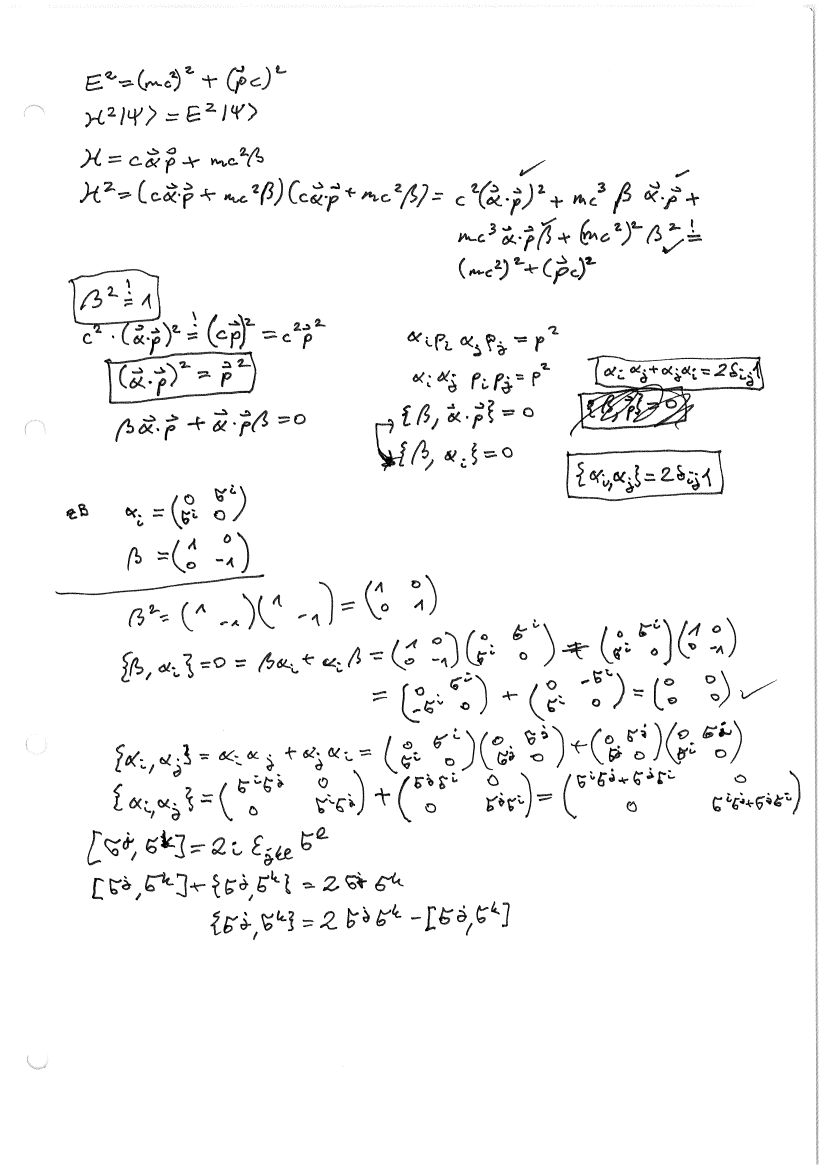 E² = (mc²)² + (p⃗c)²
ℋ²|Ψ⟩ = E²|Ψ⟩
ℋ = cα⃗·p⃗ + mc²β
ℋ² = (cα⃗·p⃗ + mc²β)(cα⃗·p⃗ + mc²β) = c²(α⃗·p⃗)² + mc³ β α⃗·p⃗ +
mc³ α⃗·p⃗β + (mc²)² β² =!
(mc²)² + (p⃗c)²
β² =! 1
c² · (α⃗·p⃗)² =! (cp⃗)² = c²p⃗²
(α⃗·p⃗)² = p⃗²
βα⃗·p⃗ + α⃗·p⃗β = 0
αᵢpᵢ αⱼpⱼ = p²
αᵢαⱼ pᵢpⱼ = p²
{β, α⃗·p⃗} = 0
{β, αᵢ} = 0
αᵢαⱼ + αⱼαᵢ = 2δᵢⱼ1
{αᵢ, αⱼ} = 2δᵢⱼ1
zB αᵢ = (0 σⁱ; σⁱ 0)
β = (1 0; 0 -1)
β² = (1 ; -1)(1 ; -1) = (1 0; 0 1)
{β, αᵢ} = 0 = βαᵢ + αᵢβ = (1 0; 0 -1)(0 σⁱ; σⁱ 0) + (0 σⁱ; σⁱ 0)(1 0; 0 -1)
= (0 σⁱ; -σⁱ 0) + (0 -σⁱ; σⁱ 0) = (0 0; 0 0) ✓
{αᵢ, αⱼ} = αᵢαⱼ + αⱼαᵢ = (0 σⁱ; σⁱ 0)(0 σʲ; σʲ 0) + (0 σʲ; σʲ 0)(0 σⁱ; σⁱ 0)
{αᵢ, αⱼ} = (σⁱσʲ 0; 0 σⁱσʲ) + (σʲσⁱ 0; 0 σʲσⁱ) = (σⁱσʲ+σʲσⁱ 0; 0 σⁱσʲ+σʲσⁱ)
[σʲ, σᵏ] = 2i εⱼₖₗ σˡ
[σʲ, σᵏ] + {σʲ, σᵏ} = 2σʲσᵏ
{σʲ, σᵏ} = 2σʲσᵏ - [σʲ, σᵏ]